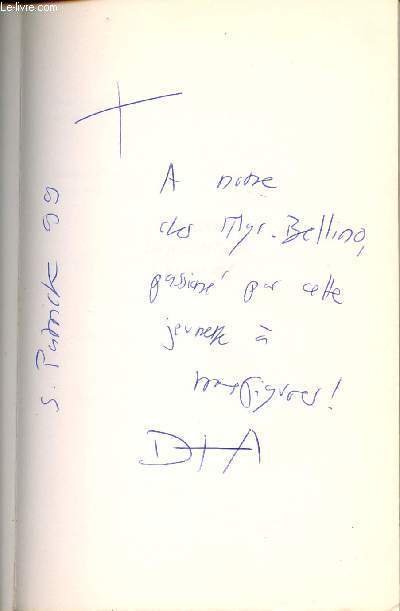 Le-livre.com
A notre
cher Mgr. Bellino,
passioné par cette
jeunesse à
transfigurer!
D+A
S. Patrick 99